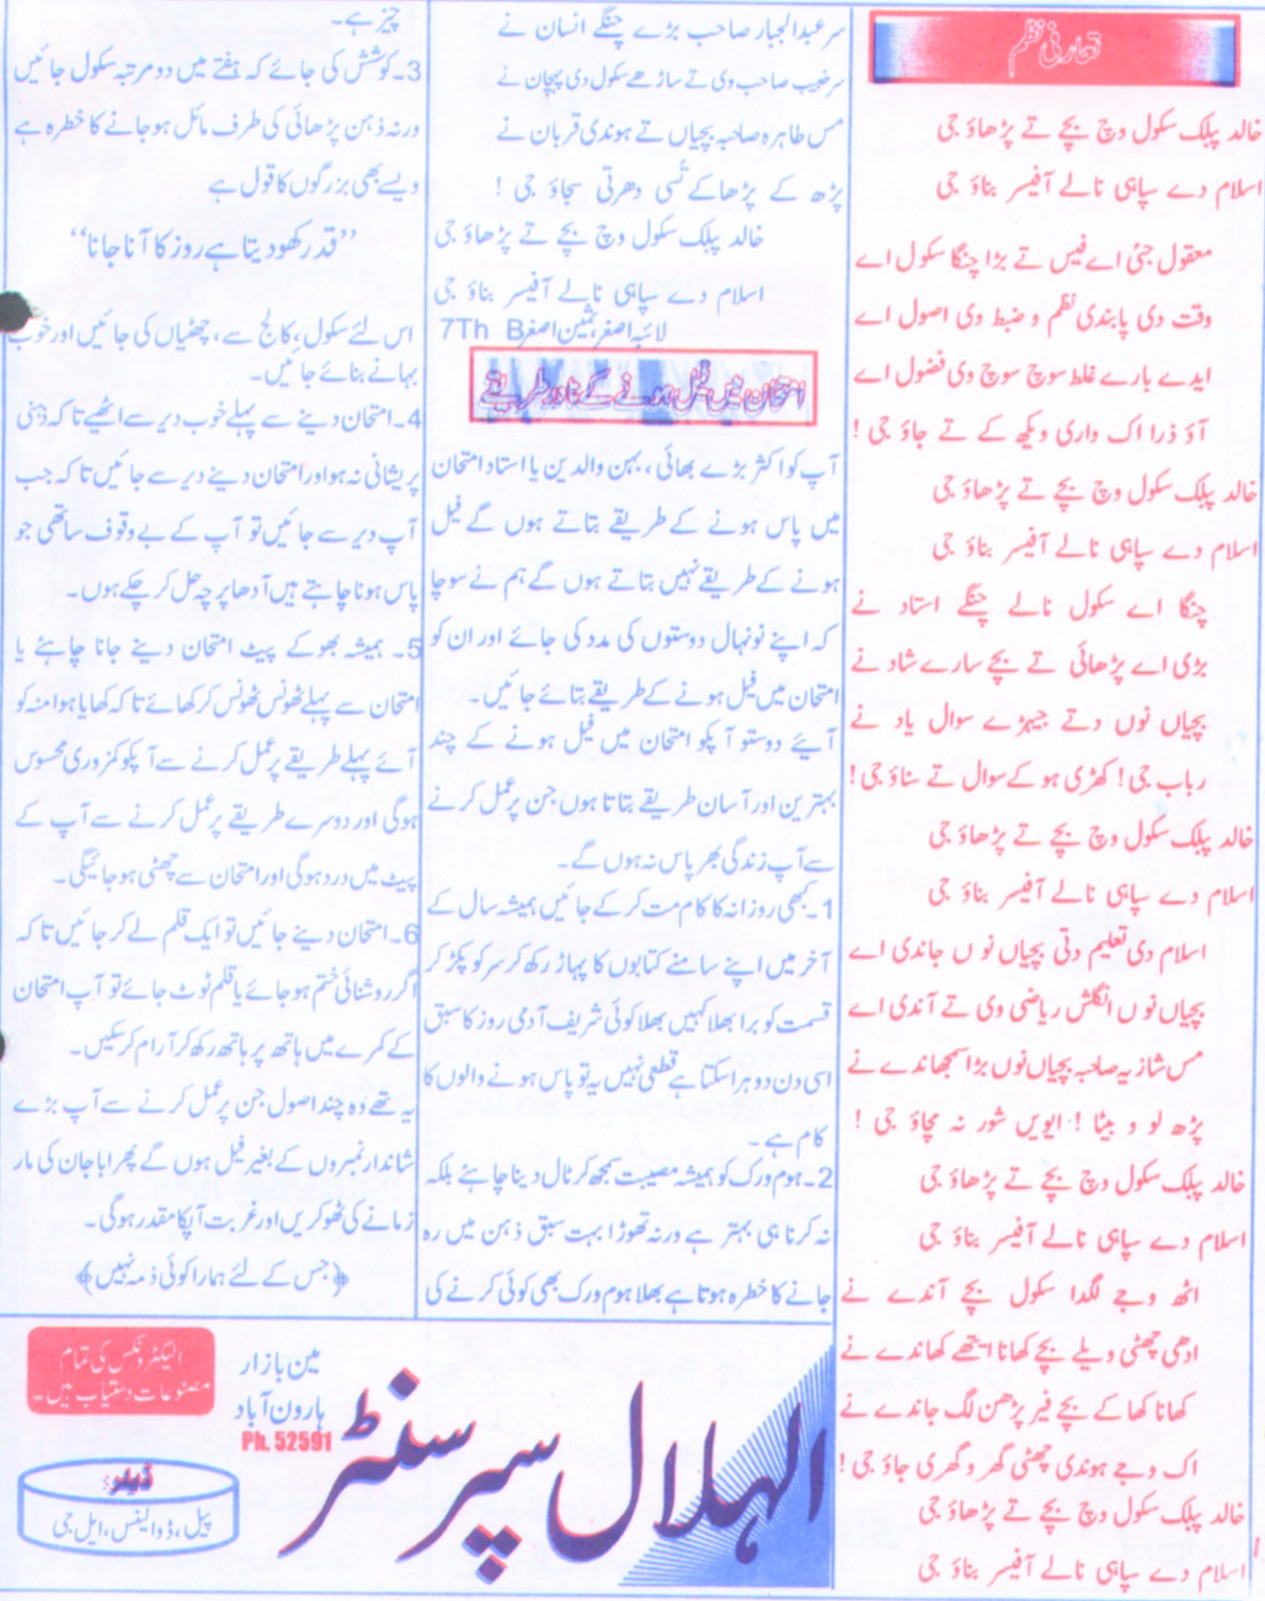 تعارفی نظم
خالد پبلک سکول وچ بچے تے پڑھاؤ جی
اسلام دے سپاہی نالے آفیسر بناؤ جی
معقول جئی اے فیس تے بڑا چنگا سکول اے
وقت دی پابندی نظم و ضبط وی اصول اے
ایدے بارے غلط سوچ سوچ وی فضول اے
آؤ ذرا اک واری ویکھ کے تے جاؤ جی!
خالد پبلک سکول وچ بچے تے پڑھاؤ جی
اسلام دے سپاہی نالے آفیسر بناؤ جی
چنگا اے سکول نالے چنگے استاد نے
بڑی اے پڑھائی تے بچے سارے شاد نے
بچیاں نوں دتے جیہڑے سوال یاد نے
رباب جی! کھڑی ہو کے سوال تے سناؤ جی!
خالد پبلک سکول وچ بچے تے پڑھاؤ جی
اسلام دے سپاہی نالے آفیسر بناؤ جی
اسلام دی تعلیم دتی بچیاں نوں جاندی اے
بچیاں نوں انگلش ریاضی وی تے آندی اے
مس شازیہ صاحبہ بچیاں نوں بڑا سمجھاندے نے
پڑھ لو و بیٹا! ایویں شور نہ مچاؤ جی!
خالد پبلک سکول وچ بچے تے پڑھاؤ جی
اسلام دے سپاہی نالے آفیسر بناؤ جی
اٹھ وجے لگدا سکول بچے آندے نے
ادھی چھٹی ویلے بچے کھانا ایتھے کھاندے نے
کھانا کھا کے بچے فیر پڑھن لگ جاندے نے
اک وجے ہوندی چھٹی گھر و گھری جاؤ جی!
خالد پبلک سکول وچ بچے تے پڑھاؤ جی
اسلام دے سپاہی نالے آفیسر بناؤ جی
سر عبدالجبار صاحب بڑے چنگے انسان نے
سر خبیب صاحب وی تے ساڑھے سکول دی پہچان نے
مس طاہرہ صاحبہ بچیاں تے ہوندی قربان نے
پڑھ کے پڑھا کے تُسی دھرتی سجاؤ جی!
خالد پبلک سکول وچ بچے تے پڑھاؤ جی
اسلام دے سپاہی نالے آفیسر بناؤ جی
لائبہ اصغر، ثمین اصغر 7Th B
امتحان میں فیل ہونے کے نادر طریقے
آپ کو اکثر بڑے بھائی، بہن والدین یا استاد امتحان
میں پاس ہونے کے طریقے بتاتے ہوں گے فیل
ہونے کے طریقے نہیں بتاتے ہوں گے ہم نے سوچا
کہ اپنے نونہال دوستوں کی مدد کی جائے اور ان کو
امتحان میں فیل ہونے کے طریقے بتائے جائیں۔
آیئے دوستو آپکو امتحان میں فیل ہونے کے چند
بہترین اور آسان طریقے بتاتا ہوں جن پر عمل کرنے
سے آپ زندگی بھر پاس نہ ہوں گے۔
1۔ کبھی روزانہ کا کام مت کر کے جائیں ہمیشہ سال کے
آخر میں اپنے سامنے کتابوں کا پہاڑ رکھ کر سر کو پکڑ کر
قسمت کو برا بھلا کہیں بھلا کوئی شریف آدمی روز کا سبق
اسی دن دوہرا سکتا ہے قطعی نہیں یہ تو پاس ہونے والوں کا
کام ہے۔
2۔ ہوم ورک کو ہمیشہ مصیبت سمجھ کر ٹال دینا چاہئے بلکہ
نہ کرنا ہی بہتر ہے ورنہ تھوڑا بہت سبق ذہن میں رہ
جانے کا خطرہ ہوتا ہے بھلا ہوم ورک بھی کوئی کرنے کی
چیز ہے۔
3۔ کوشش کی جائے کہ ہفتے میں دو مرتبہ سکول جائیں
ورنہ ذہن پڑھائی کی طرف مائل ہو جانے کا خطرہ ہے
ویسے بھی بزرگوں کا قول ہے
”قدر کھو دیتا ہے روز کا آنا جانا“
اس لئے سکول، کالج سے، چھٹیاں کی جائیں اور خوب
بہانے بنائے جائیں۔
4۔ امتحان دینے سے پہلے خوب دیر سے اٹھیے تاکہ ذہنی
پریشانی نہ ہو اور امتحان دینے دیر سے جائیں تاکہ جب
آپ دیر سے جائیں تو آپ کے بے وقوف ساتھی جو
پاس ہونا چاہتے ہیں آدھا پرچہ حل کر چکے ہوں۔
5۔ ہمیشہ بھوکے پیٹ امتحان دینے جانا چاہئے یا
امتحان سے پہلے ٹھونس ٹھونس کر کھائے تاکہ کھایا ہوا منہ کو
آئے پہلے طریقے پر عمل کرنے سے آپکو کمزوری محسوس
ہوگی اور دوسرے طریقے پر عمل کرنے سے آپ کے
پیٹ میں درد ہوگی اور امتحان سے چھٹی ہو جائیگی۔
6۔ امتحان دینے جائیں تو ایک قلم لے کر جائیں تاکہ
اگر روشنائی ختم ہو جائے یا قلم ٹوٹ جائے تو آپ امتحان
کے کمرے میں ہاتھ پر ہاتھ رکھ کر آرام کر سکیں۔
یہ تھے وہ چند اصول جن پر عمل کرنے سے آپ بڑے
شاندار نمبروں کے بغیر فیل ہوں گے پھر ابا جان کی مار
زمانے کی ٹھوکریں اور غربت آپکا مقدر ہوگی۔
﴿جس کے لئے ہمارا کوئی ذمہ نہیں﴾
الہلال سپر سنٹر
مین بازار
ہارون آباد
Ph. 52591
الیکٹرونکس کی تمام
مصنوعات دستیاب ہیں۔
ڈیلر:
پیل، ڈوالینس، ایل جی